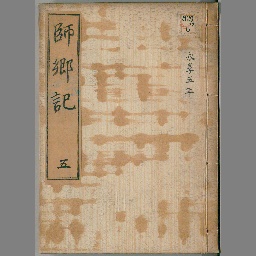 師郷記
五
永享五年